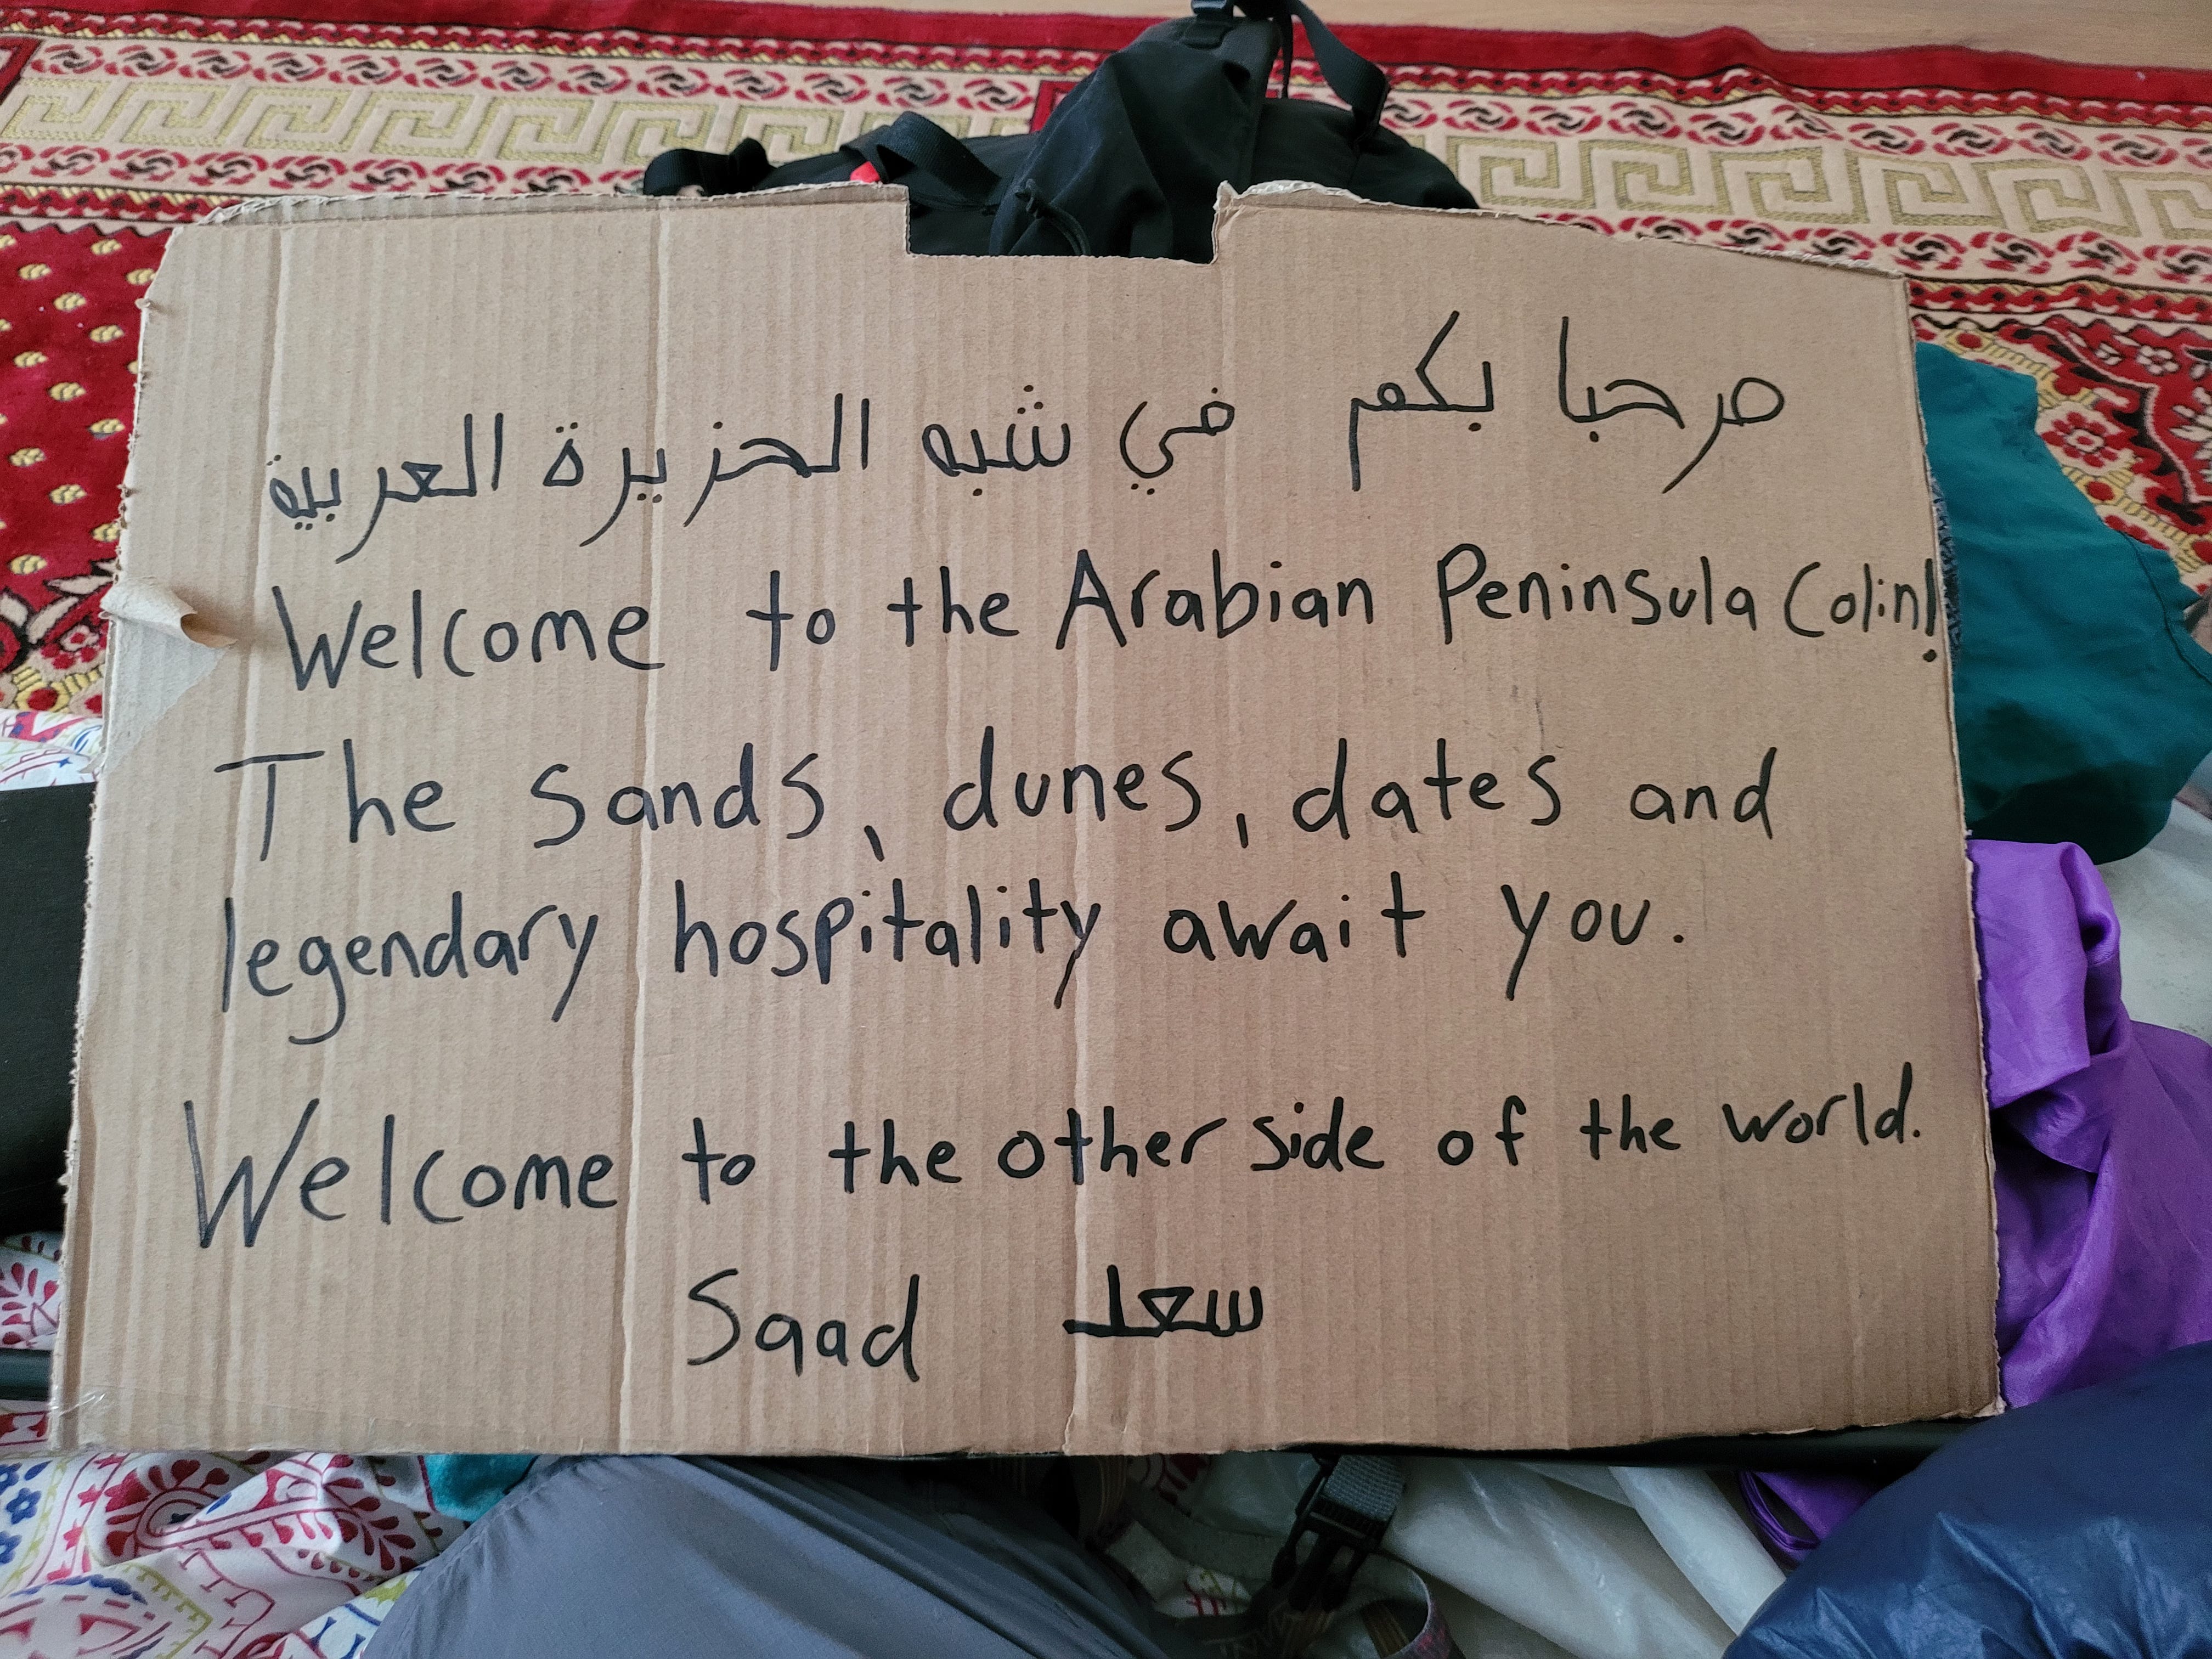 مرحبا بكم في شبه الجزيرة العربية
Welcome to the Arabian Peninsula Colin!
The sands, dunes, dates and
legendary hospitality await you.
Welcome to the other side of the world.
Saad سعد